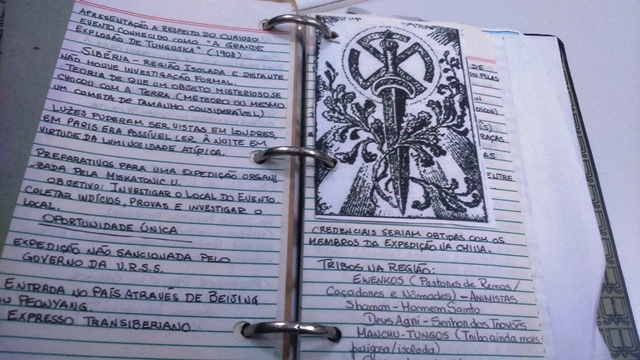 APRESENTAÇÃO A RESPEITO DO CURIOSO
EVENTO CONHECIDO COMO "A GRANDE
EXPLOSÃO DE TUNGOSKA" (1908)
SIBÉRIA - REGIÃO ISOLADA E DISTANTE
NÃO HOUVE INVESTIGAÇÃO FORMAL.
TEORIA DE QUE UM OBJETO MISTERIOSO SE
CHOCOU COM A TERRA (METEORO OU MESMO
UM COMETA DE TAMANHO CONSIDERÁVEL)
LUZES PUDERAM SER VISTAS EM LONDRES,
EM PARIS ERA POSSÍVEL LER À NOITE EM
VIRTUDE DA LUMINOSIDADE ATÍPICA.
PREPARATIVOS PARA UMA EXPEDIÇÃO ORGANI
ZADA PELA MISKATONIC U.
OBJETIVO: INVESTIGAR O LOCAL DO EVENTO.
COLETAR INDÍCIOS, PROVAS E INVESTIGAR O
LOCAL.
OPORTUNIDADE ÚNICA
EXPEDIÇÃO NÃO SANCIONADA PELO
GOVERNO DA U.R.S.S.
ENTRADA NO PAÍS ATRAVÉS DE BEIJING
OU PEONYANG.
EXPRESSO TRANSIBERIANO
CREDENCIAIS SERIAM OBTIDAS COM OS
MEMBROS DA EXPEDIÇÃO NA CHINA.
TRIBOS NA REGIÃO:
EWENKOS (Pastores de Renas/
Caçadores e Nômades) - ANIMISTAS
Shaman - Homem Santo
Deus Agni - Senhor dos Trovões
MANCHU-TUNGOS (Tribo ainda mais
perigosa/isolada)
DE
ENTRE